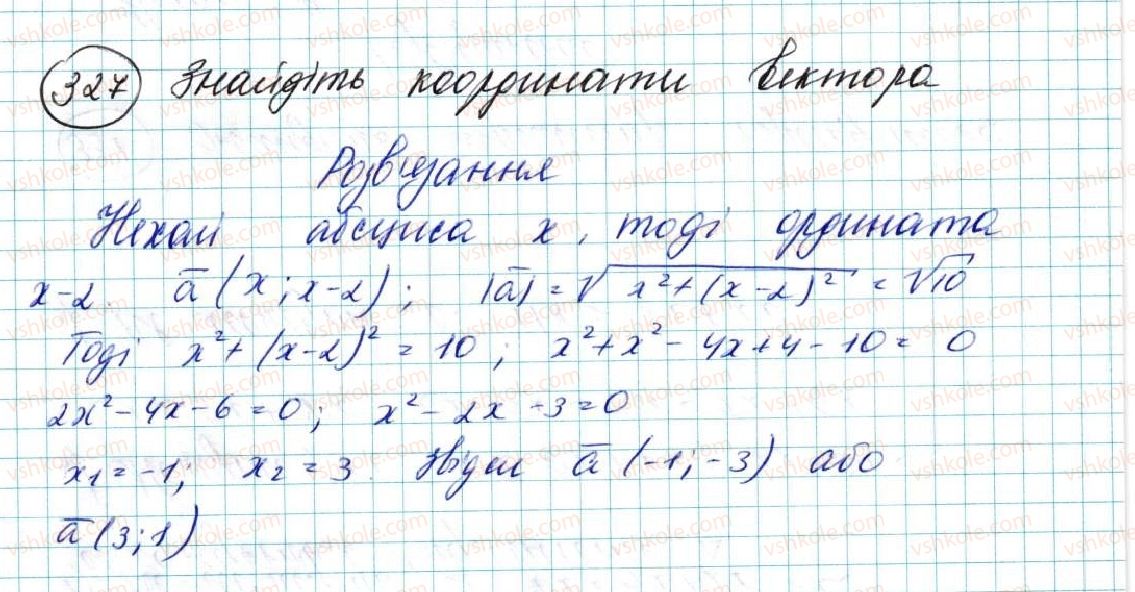 327 Знайдіть координати вектора
Розв'язання
Нехай абсциса x, тоді ордината
x-2. a̅ (x; x-2); |a̅| = √(x²+(x-2)²) = √10
Тоді x²+(x-2)² = 10; x²+x²-4x+4-10=0
2x²-4x-6=0; x²-2x-3=0
x₁=-1; x₂=3. Звідси a̅ (-1;-3) або
a̅ (3;1)